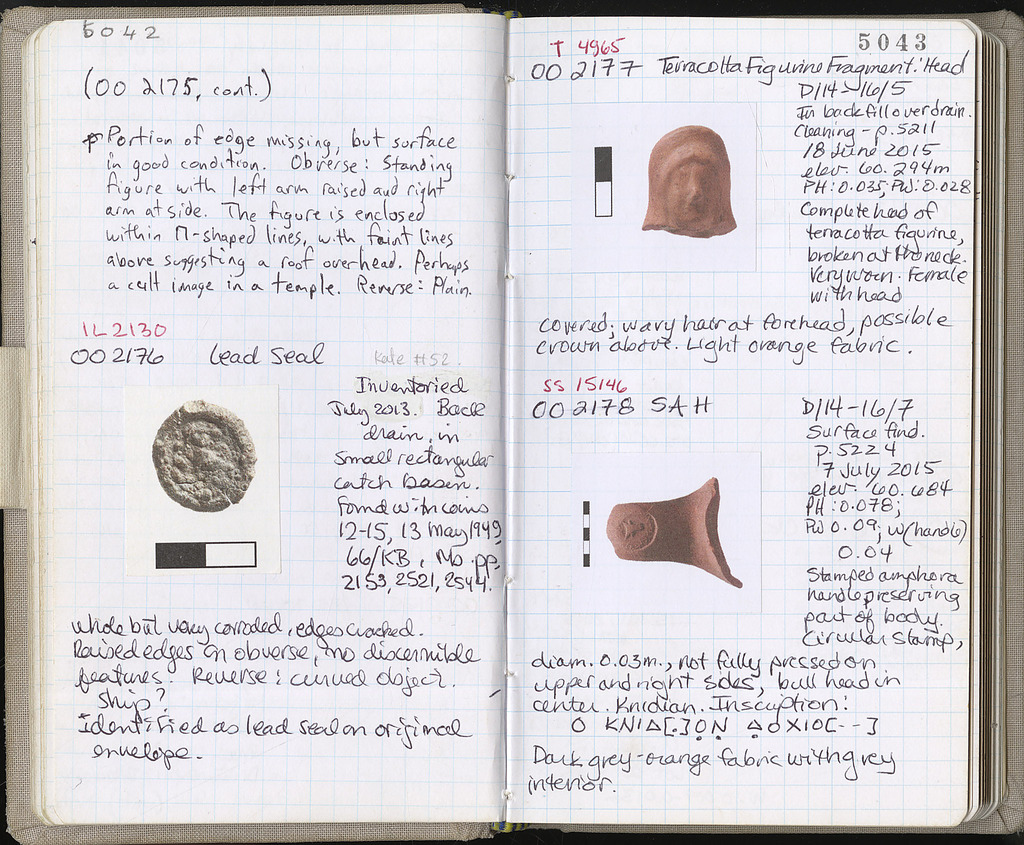 5042
(OO 2175, cont.)
Portion of edge missing, but surface
in good condition. Obverse: Standing
figure with left arm raised and right
arm at side. The figure is enclosed
within Π-shaped lines, with faint lines
above suggesting a roof overhead. Perhaps
a cult image in a temple. Reverse: Plain.
IL 2130
OO 2176 Lead Seal Kate #52.
Inventoried
July 2013. Back
drain, in
small rectangular
catch basin.
Found with coins
12-15, 13 May 1949,
66/KB, Nb. pp.
2153, 2521, 2544.
whole but very corroded, edges cracked.
Raised edges on obverse, no discernible
features. Reverse: curved object.
Ship?
Identified as lead seal on original
envelope.
5043
T 4965
OO 2177 Terracotta Figurine Fragment: Head
D/14-16/5
In backfill over drain.
Cleaning - p. 5211
18 June 2015
elev. 60.294m
PH: 0.035; PW: 0.028
Complete head of
terracotta figurine,
broken at the neck.
Very worn. Female
with head
covered; wavy hair at forehead, possible
crown above. Light orange fabric.
SS 15146
OO 2178 SAH
D/14-16/7
Surface find.
p. 5224
7 July 2015
elev. 60.684
PH: 0.078;
PW 0.09; w(handle)
0.04
Stamped amphora
handle preserving
part of body.
Circular stamp,
diam. 0.03m., not fully pressed on
upper and right sides, bull head in
center. Knidian. Inscription:
Ο ΚΝΙΔ[.]Ο̣Ν̣ Δ̣ΟΧΙΟ[--]
Dark grey-orange fabric with grey
interior.